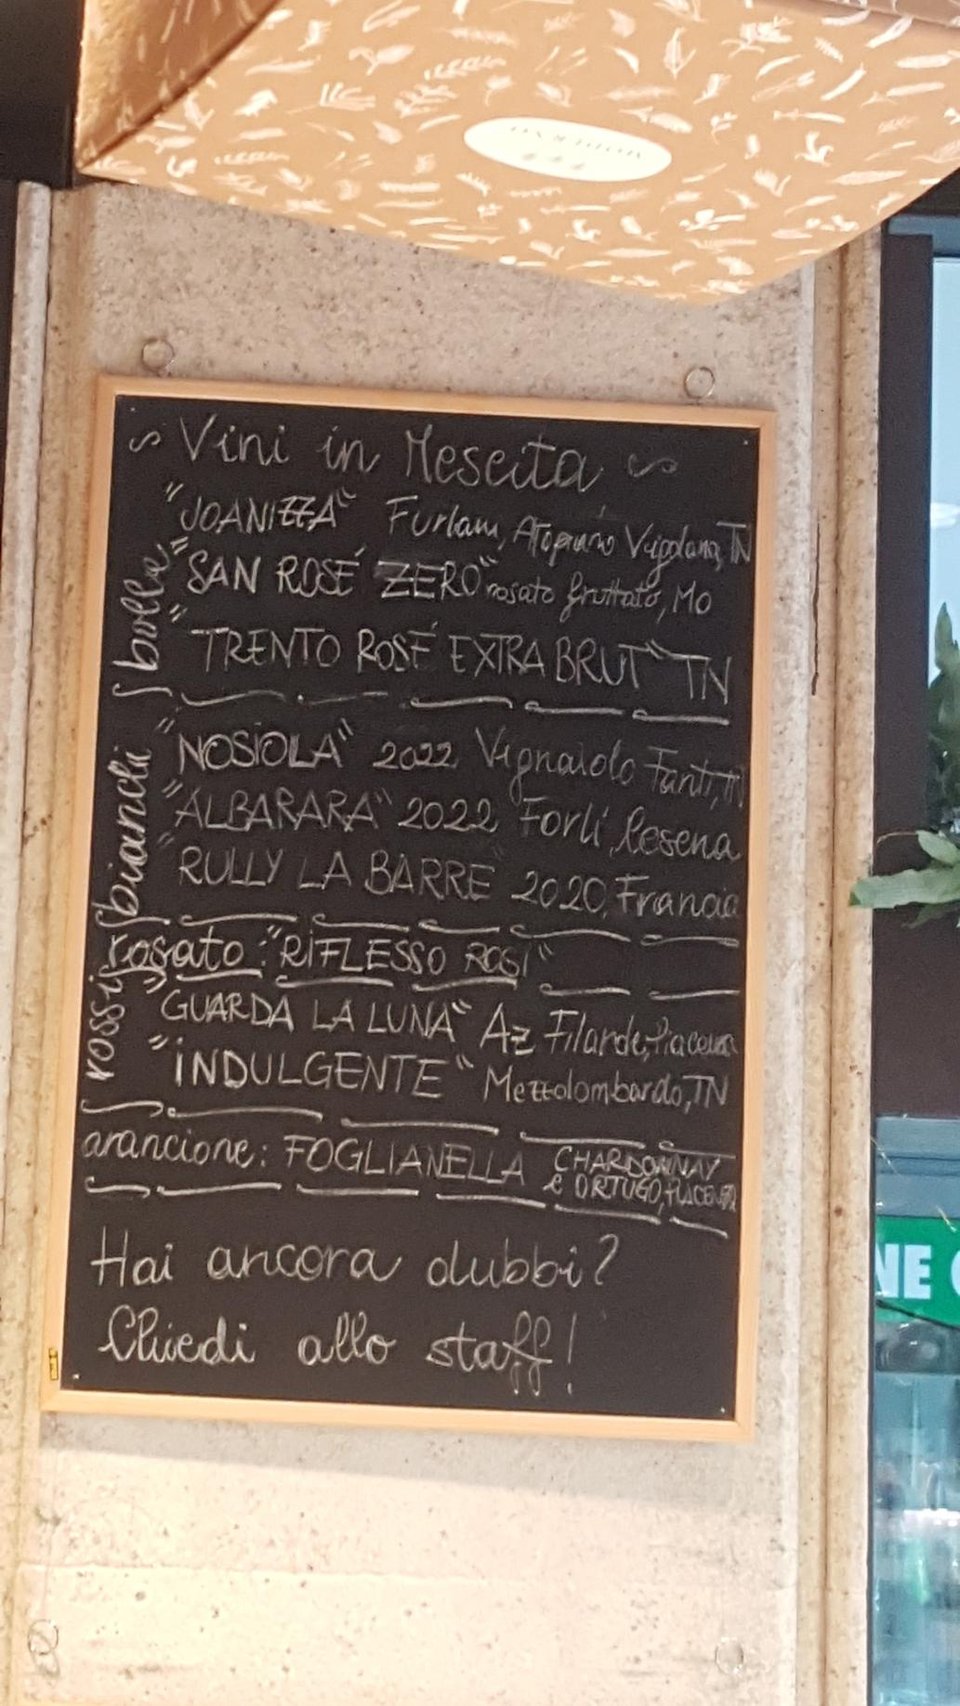 Vini in Mescita
bolle
"JOANIZZA" Furlani, Vigolana, TN
"SAN ROSÉ ZERO" rosato fruttato, Mo
"TRENTO ROSÉ EXTRA BRUT" TN
bianchi
"NOSIOLA" 2022 Vignaiolo Fanti, TN
"ALBARARA" 2022 Forlì, Cesena
"RULLY LA BARRE" 2020, Francia
rosato: "RIFLESSO ROSI"
rossi
"GUARDA LA LUNA" Az Filarde, Piacenza
"INDULGENTE" Mezzolombardo, TN
arancione: FOGLIANELLA CHARDONNAY
e ORTUGO, PIACENZA
Hai ancora dubbi?
Chiedi allo staff!
NE